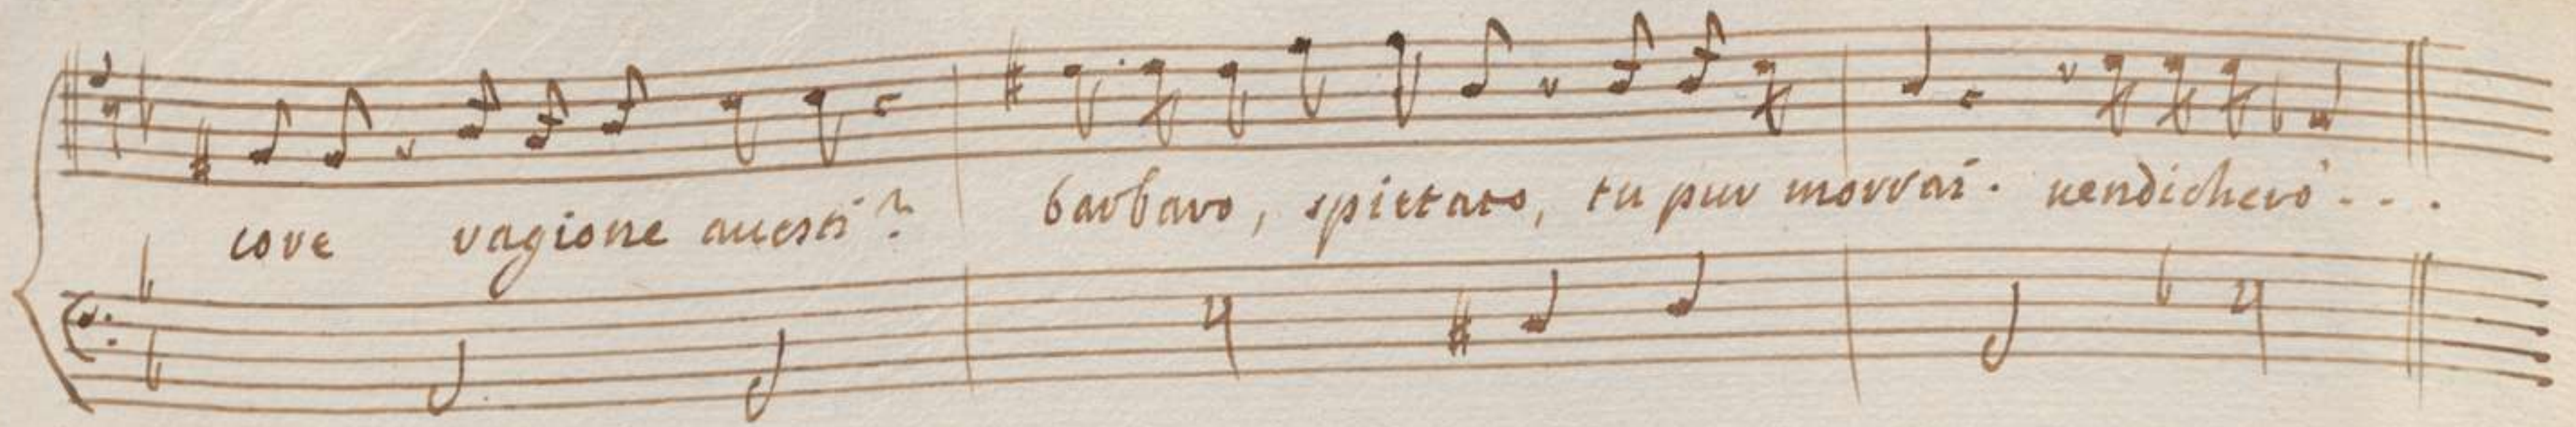 core ragione auesti? barbaro, spietato, tu pur morrai. uendicherò...